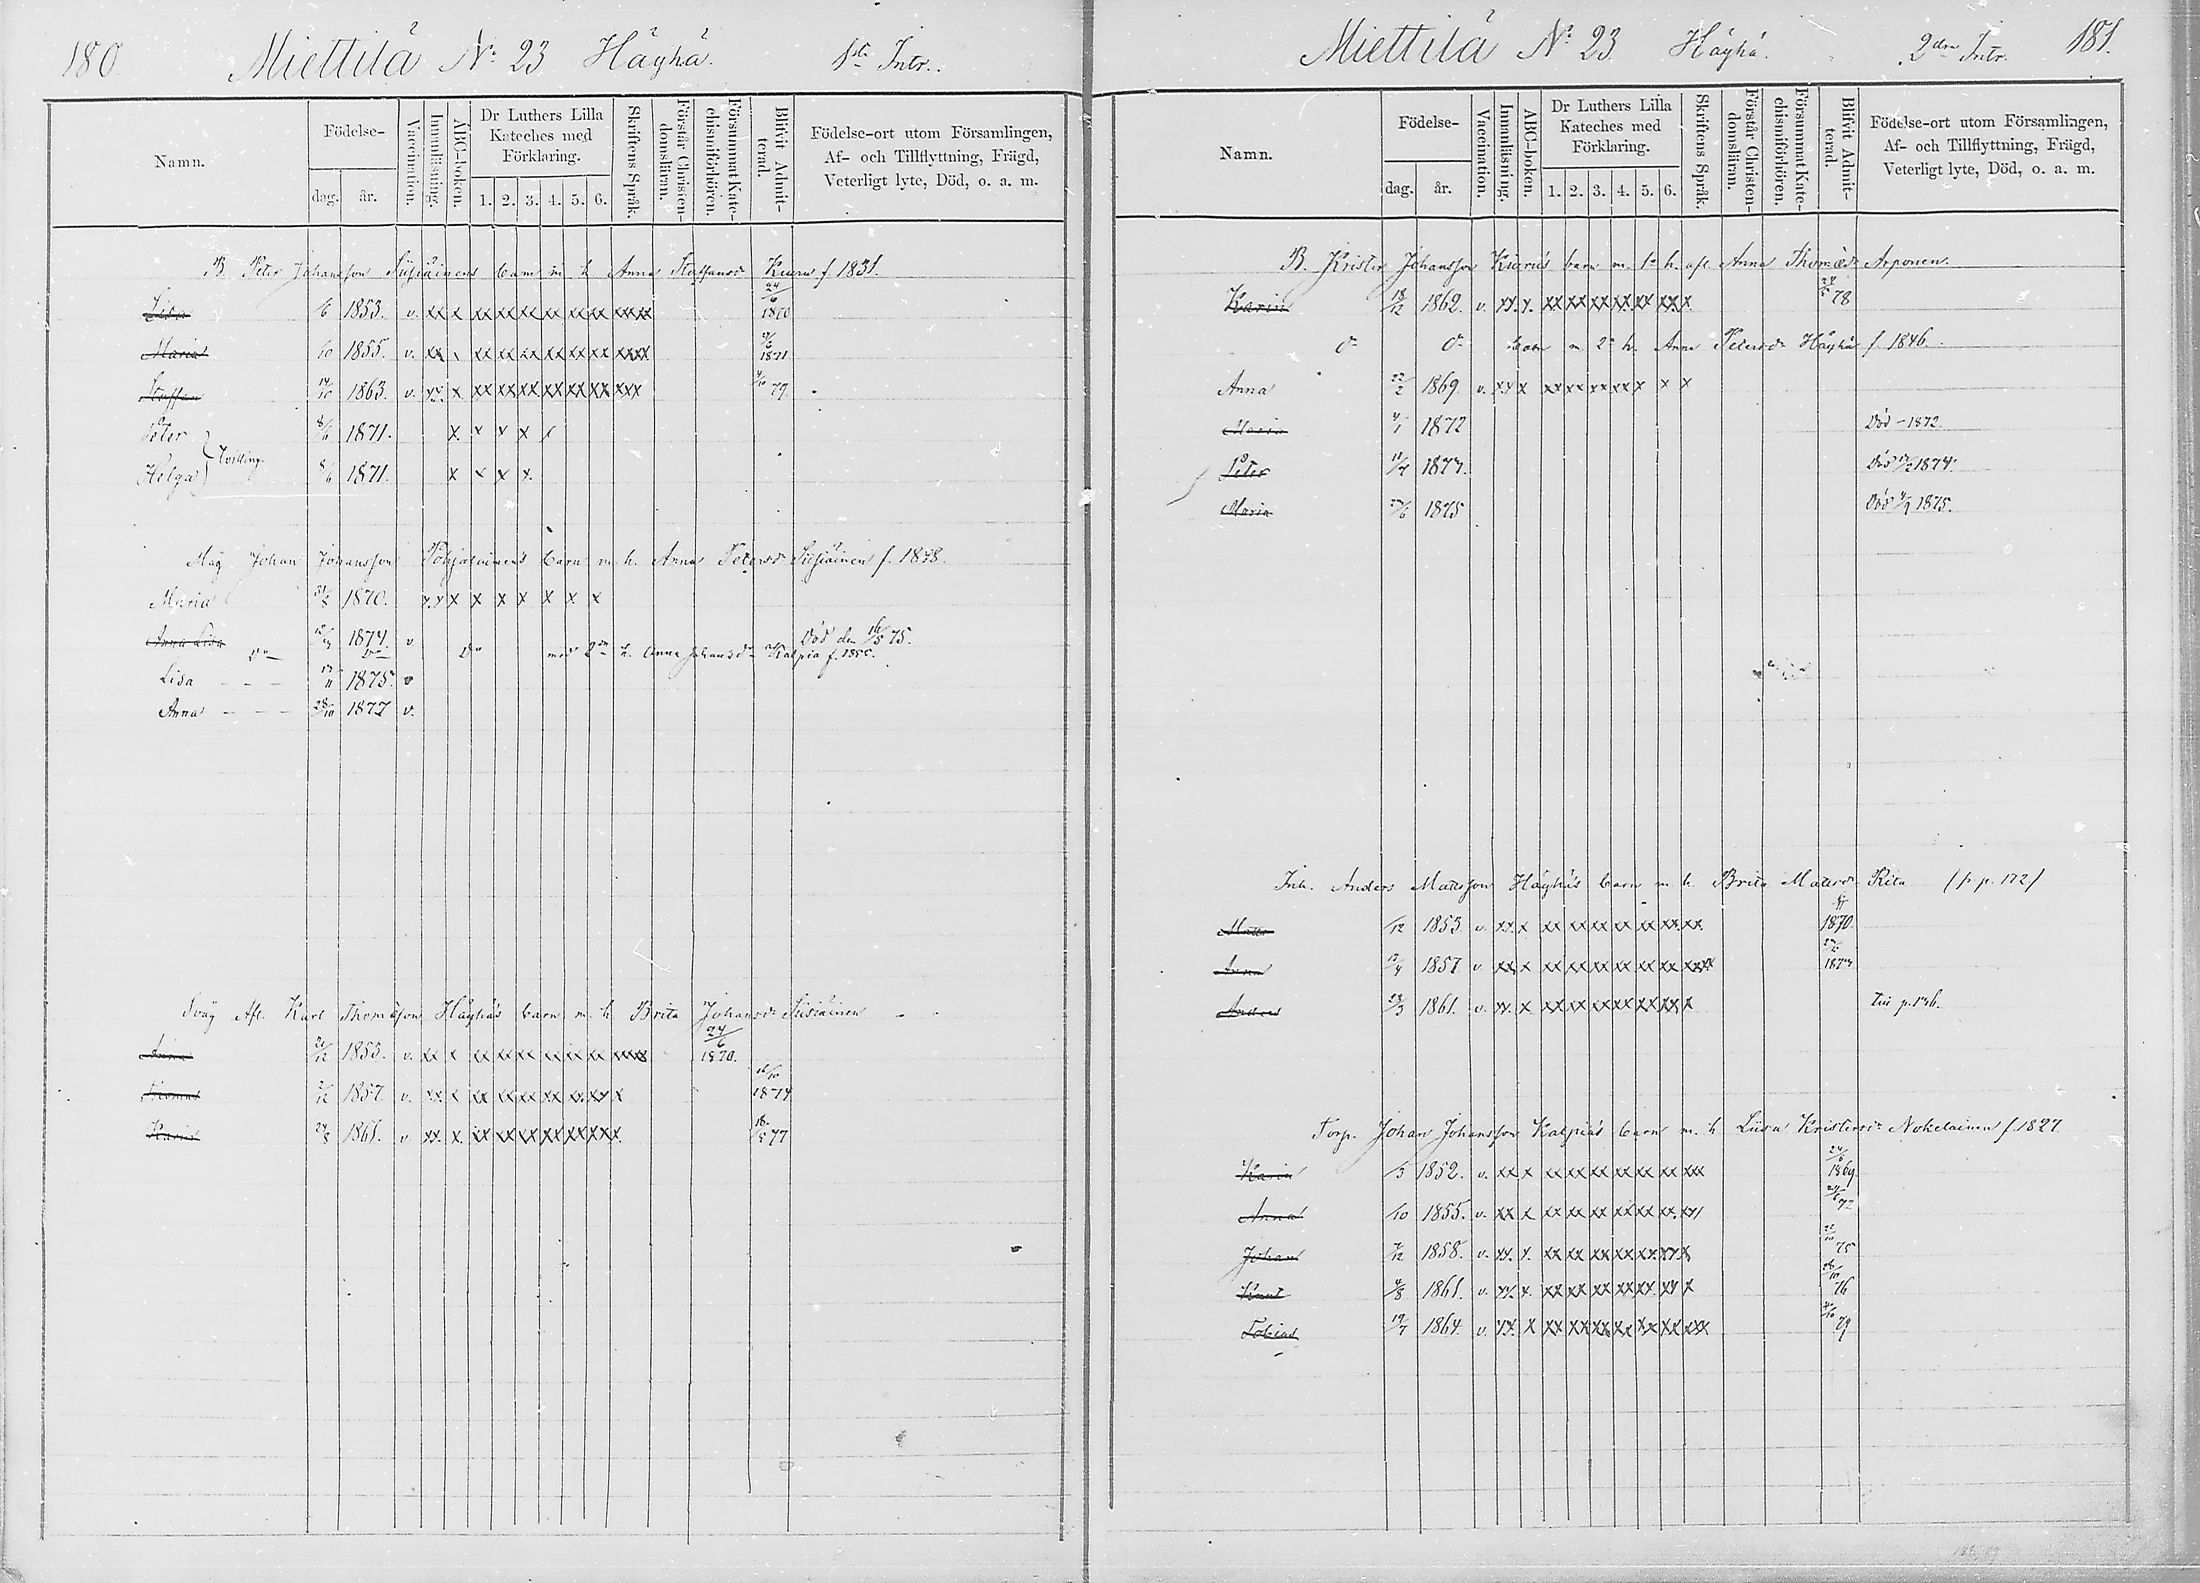 180. Miettilä No 23 Häyhä. 1sta Intr.
Namn.
Födelse-
dag. år.
Vaccination.
Innanläsning.
ABC-boken.
Dr Luthers Lilla Kateches med Förklaring.
1. 2. 3. 4. 5. 6.
Skriftens Språk.
Förstår Christen-domsläran.
Försummat Kate-chismiförhören.
Blifvit Admit-terad.
Födelse-ort utom Församlingen, Af- och Tillflyttning, Frägd, Veterligt lyte, Död, o. a. m.
B. Peter Johansson Siisiäinens barn m. h. Anna Staffansdr Kiuru f. 1831.
Lisa /6 1853. v. xx x xx xx xx xx xx xx xxxx 24/6 1870
Maria /10 1855. v. xx x xx xx xx xx xx xx xxxx 1871
Staffan 14/10 1863. v. xx. x xx xx xx xx xx xx xxx 79.
Peter 8/6 1871. x. x x x x
Tvilling.
Helga 8/6 1871. x x x x.
Måg Johan Johansson Pohjalainens barn m. h. Anna Petersdr Siisiäinen f. 1848.
Maria 1870. xx x x x x x x. x
Anna Lisa 1874. v Död den 16/5 75.
Do Do Do med 2dra h. Anna Johansdr Kalpia f. 1855.
Lisa - - - 17/11 1875. v
Anna - - - 28/10 1877 v.
Svåg Afl. Karl Thomasson Häyhäs barn m. h. Brita Johansdr Siisiäinen
Anna 21/12 1853. v. xx x xx xx xx xx xx xx xxxx 24/6 1870.
Thomas 1857. v. xx. x xx xx xx xx xx. xx x 16/10 1874
Karin 24/8 1861. v. xx. x. xx xx xx xx xx xx x. 18/5 77
Miettilä No 23 Häyhä. 2dra Intr. 181.
Namn.
Födelse-
dag. år.
Vaccination.
Innanläsning.
ABC-boken.
Dr Luthers Lilla Kateches med Förklaring.
1. 2. 3. 4. 5. 6.
Skriftens Språk.
Förstår Christen-domsläran.
Försummat Kate-chismiförhören.
Blifvit Admit-terad.
Födelse-ort utom Församlingen, Af- och Tillflyttning, Frägd, Veterligt lyte, Död, o. a. m.
B. Krister Johansson Kiurus barn m. 1a h. afl. Anna Thomædr Arponen.
Karin 18/12 1862. v. xx. x. xx xx xx xx xx xx. x. 78
do do barn m. 2a h. Anna Petersdr Häyhä f. 1846.
Anna 22/2 1869. v. xx x xx xx xx xx x x x
Maria 4/1 1872 Död - 1872.
Peter 11/4 1874. Död 1874.
Maria 1875 Död 4/9 1875.
Inh. Anders Mattsson Häyhäs barn m h. Brita Mattsdr Rita (fr p. 172)
Matts /12 1853 v. xx. x xx xx xx xx xx xx. xx. 1870.
Anna 17/4 1857 v. xx. x xx xx xx xx xx xx xxxx
Anders 28/3 1861. v. xx. x xx xx xx xx xx xx x Till p. 176.
Torp. Johan Johansson Kalpias barn m. h. Liisa Kristersdr Nokelainen f. 1827
Karin /5 1852. v. xx x xx xx xx xx xx xx xxx 24/6 1869
Anna /10 1855. v. xx x xx xx xx xx xx xx. xx/ 72
Johan 7/12 1858. v. xx. x. xx xx xx xx xx. xx x 75
Knut 4/8 1861. v. xx. x. xx xx xx xx xx. xx x 76
Tobias 19/7 1864. v. xx. x xx xx xx xx xx xx xxx 79